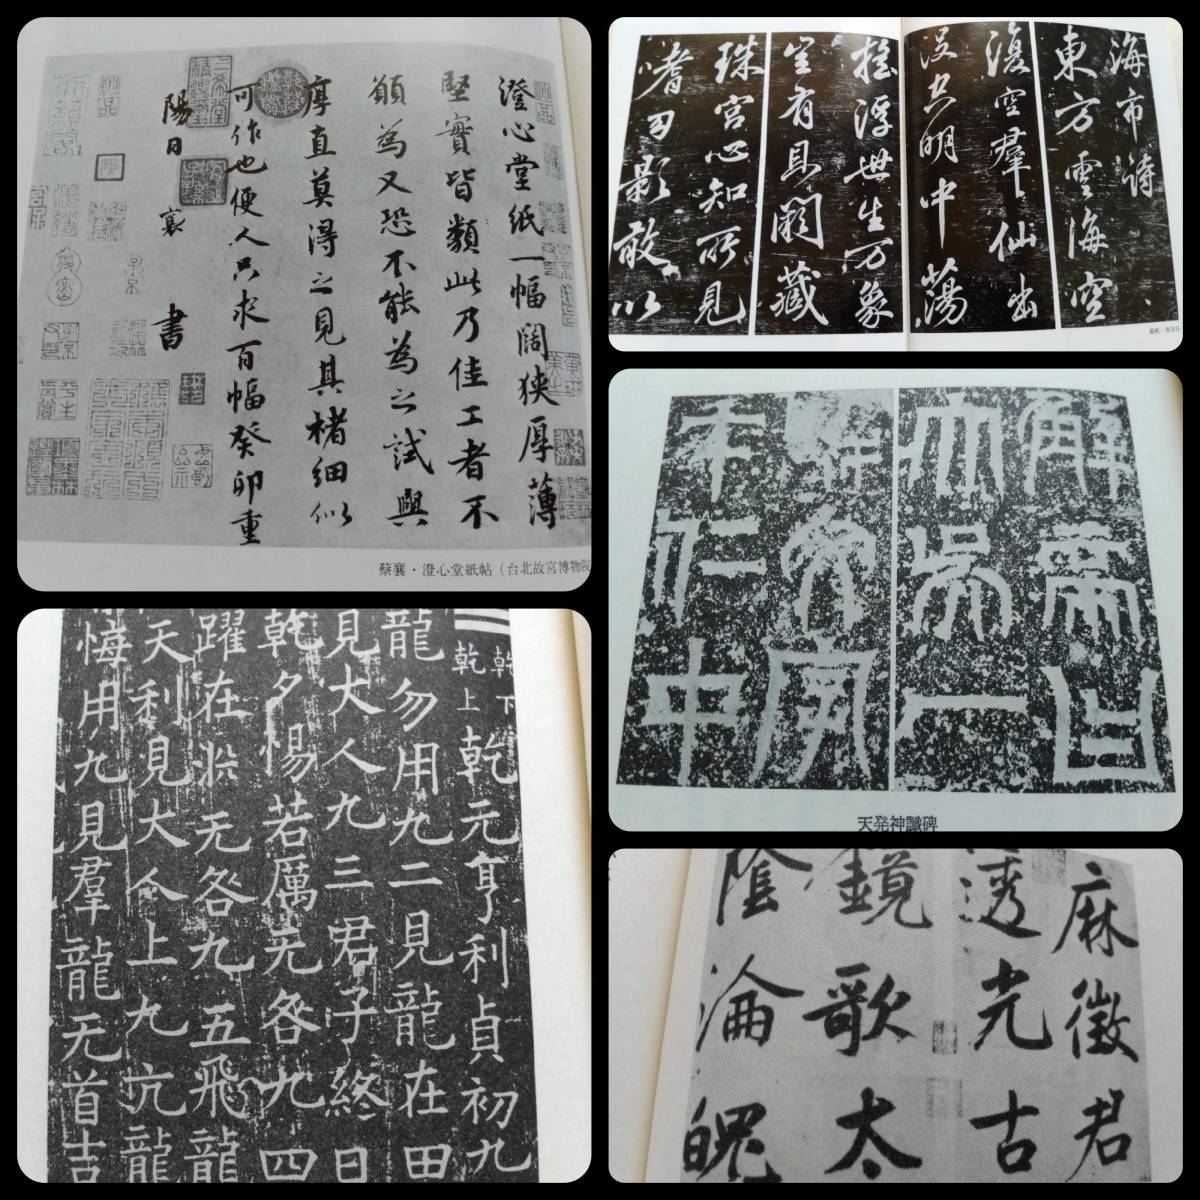 澄心堂紙一幅闊狹厚薄
堅實皆類此乃佳工者不
願為又恐不能為之試與
厚直莫得之見其楮細似
可作也便人只求百幅癸卯重
陽日 襄 書
蔡襄・澄心堂紙帖（台北故宮博物院
海市詩
東方雲海空
復空羣仙出
沒空明中蕩
搖浮世生万象
豈有貝闕藏
珠宮心知所見
皆幻影敢以
解曰
大吳一
未仁中
天発神讖碑
乾下
乾上
乾元亨利貞初九
龍勿用九二見龍在田
見大人九三君子終日
乾夕惕若厲无咎九四
躍在渊无咎九五飛龍
天利見大人上九亢龍
悔用九見羣龍无首吉
麻徵君
透光古
鏡歌太
陰淪魄